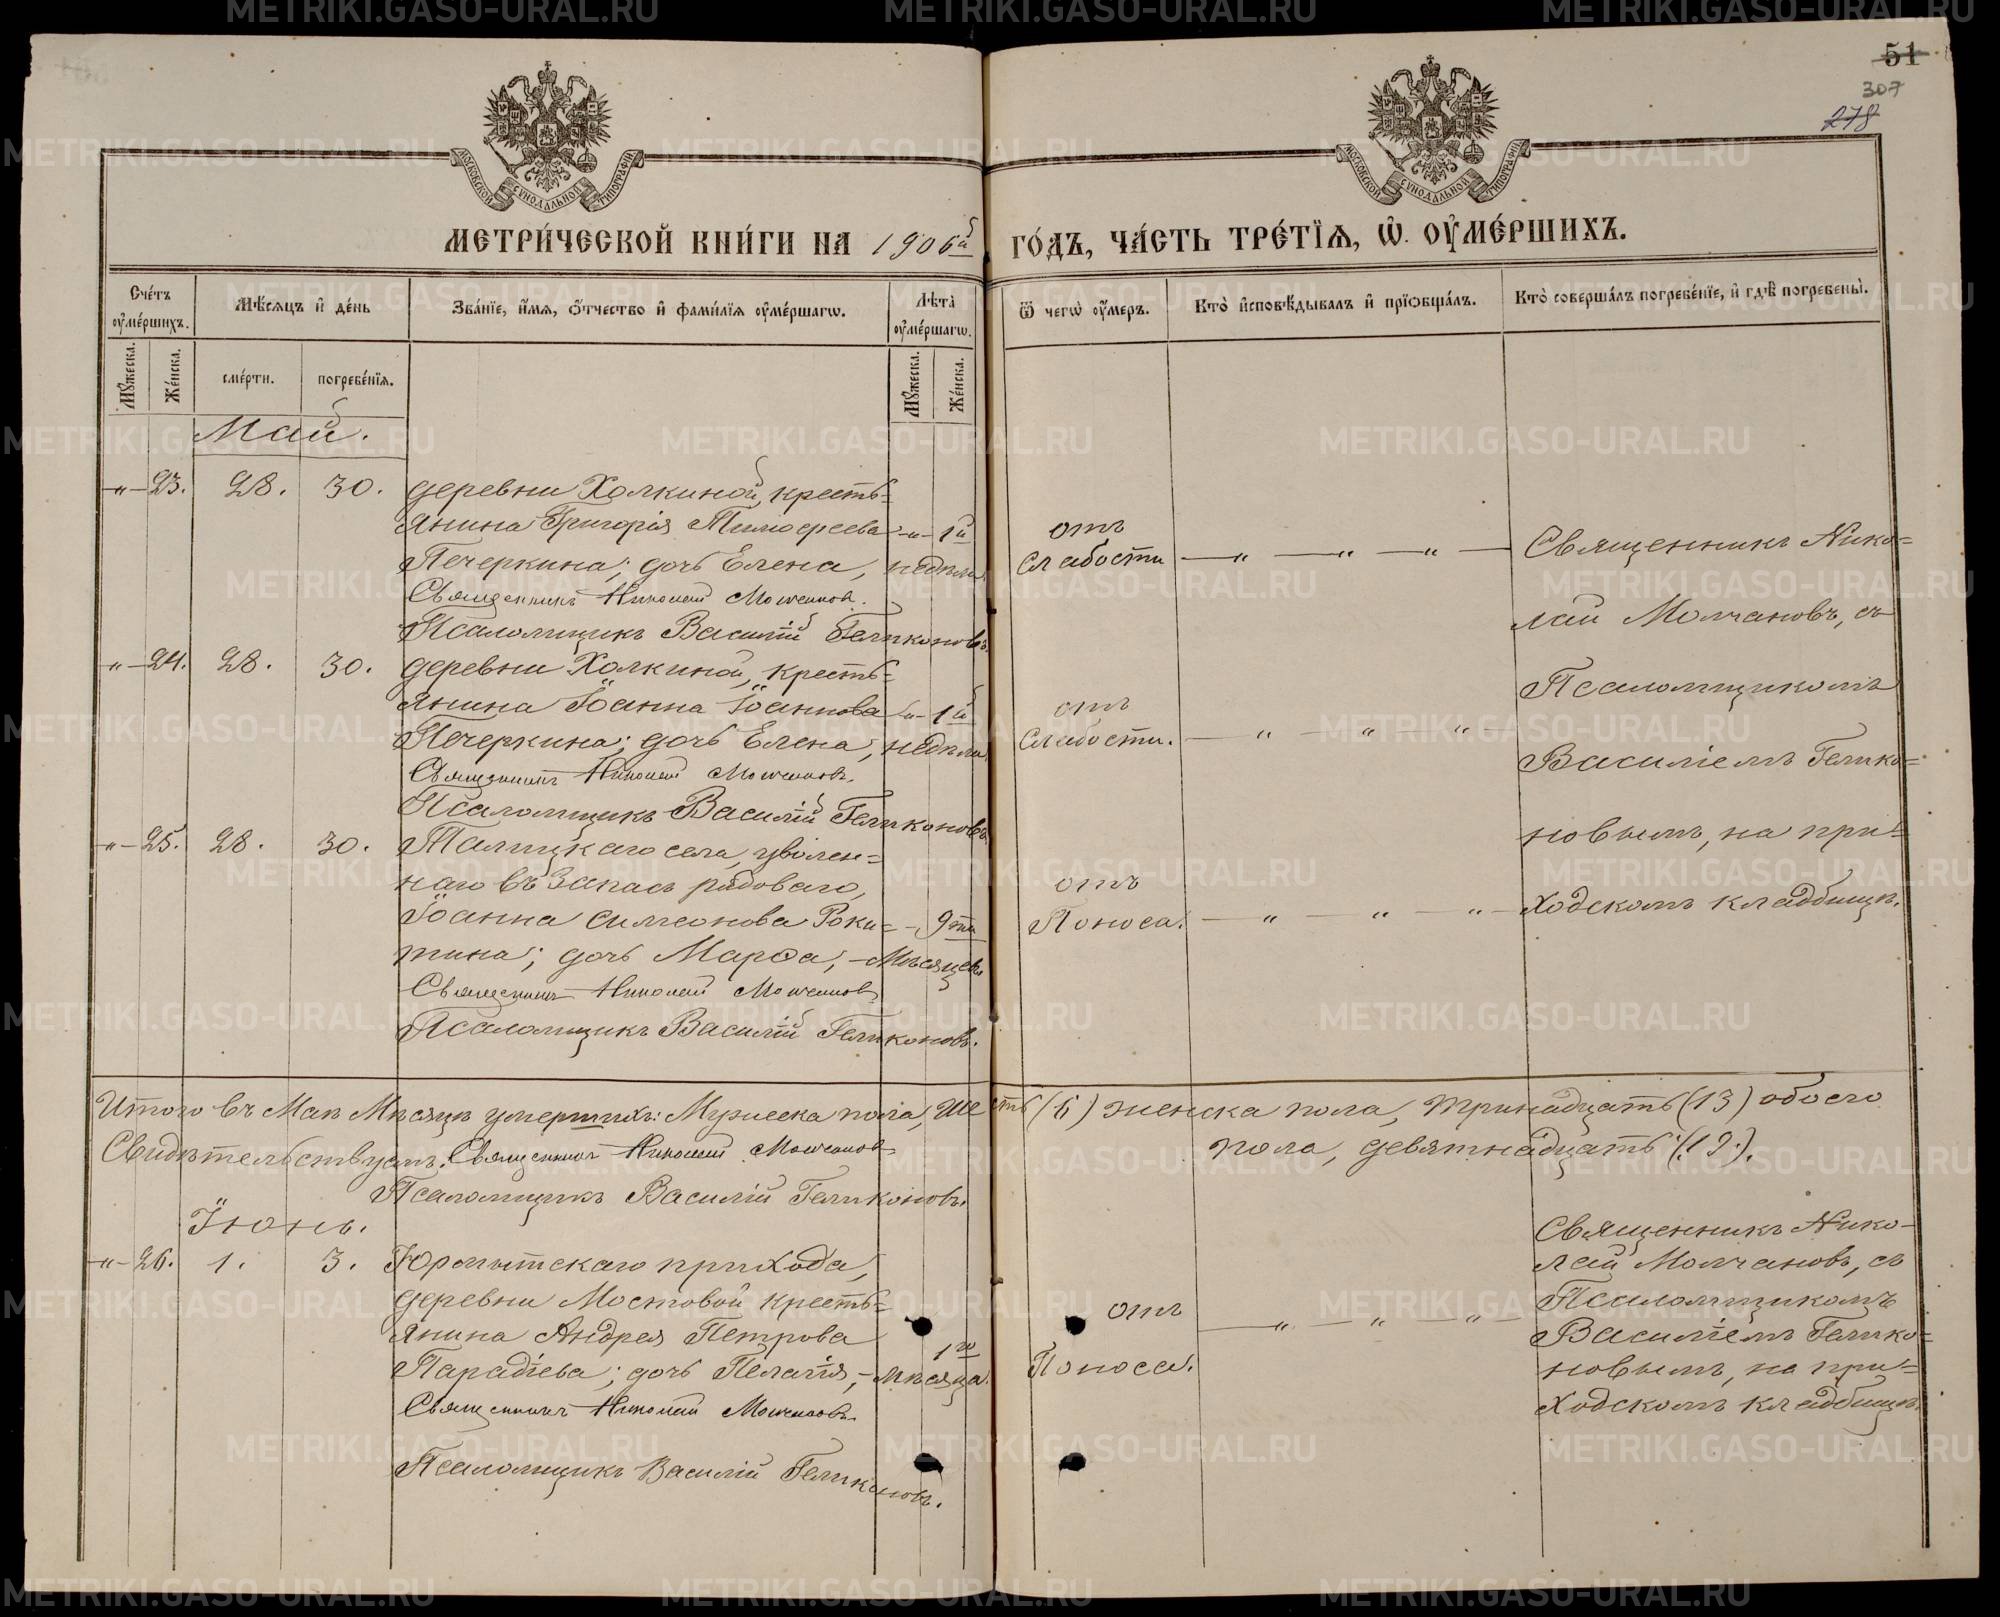 51
307
278
МОСКОВСКОЙ СѴНОДАЛЬНОЙ ТИПОГРАФІИ
МОСКОВСКОЙ СѴНОДАЛЬНОЙ ТИПОГРАФІИ
МЕТРИ́ЧЕСКОЙ КНИ́ГИ НА 1906й ГО́ДЪ, ЧА́СТЬ ТРЕ́ТІѦ, Ѡ҆ ОУ҆МЕ́РШИХЪ.
Сче́тъ оу҆ме́ршихъ.
Мѣ́сяцъ и҆ де́нь
Зва́нїе, и҆́мя, ѻ҆́тчество и҆ фами́лїя оу҆ме́ршагѡ.
Лѣ́та оу҆ме́ршагѡ.
Ѿ чегѡ̀ оу҆́меръ.
Кто̀ и҆сповѣ́дывалъ и҆ прїѻбща́лъ.
Кто̀ соверша́лъ погребе́нїе, и҆ гдѣ̀ погребены̀.
Мꙋ́жеска.
Же́нска.
сме́рти.
погребе́нїя.
Мꙋ́жеска.
Же́нска.
Май.
-"- 23. 28. 30. деревни Холкиной, кресть=
янина Григорія Тимоѳеева -"- 1й
Печеркина; дочь Елена, недѣли
Священникъ Николай Молчановъ.
Псаломщикъ Василій Геликоновъ.
отъ
Слабости — " — " — " —
Священникъ Нико=
лай Молчановъ, съ
Псаломщикомъ
Василіемъ Гелико=
новымъ, на при=
ходскомъ кладбищѣ.
-"- 24. 28. 30. деревни Холкиной, кресть=
янина Іоанна Іоаннова -"- 1й
Печеркина; дочь Елена, недѣли
Священникъ Николай Молчановъ.
Псаломщикъ Василій Геликоновъ.
отъ
Слабости. — " — " — " —
-"- 25. 28. 30. Талицкаго села, уволен=
наго въ запасъ рядоваго,
Іоанна Симеонова Роки= - 9ти
тина; дочь Марѳа, - Мѣсяцевъ
Священникъ Николай Молчановъ.
Псаломщикъ Василій Геликоновъ.
отъ
Поноса. — " — " — " —
Итого въ Маѣ Мѣсяцѣ умершихъ: Мужеска пола, шесть (6) женска пола, тринадцать (13) обоего
пола, девятнадцать (19).
Свидѣтельствуемъ: Священникъ Николай Молчановъ
Псаломщикъ Василій Геликоновъ.
Іюнь.
-"- 26. 1. 3. Юрмытскаго прихода,
деревни Мостовой кресть=
янина Андрея Петрова 1го
Парадіева; дочь Пелагія, - мѣсяца.
Священникъ Николай Молчановъ.
Псаломщикъ Василій Геликоновъ.
отъ
Поноса. — " — " — " —
Священникъ Нико-
лай Молчановъ, съ
Псаломщикомъ
Василіемъ Гелико=
новымъ, на при=
ходскомъ кладбищѣ.
METRIKI.GASO-URAL.RU